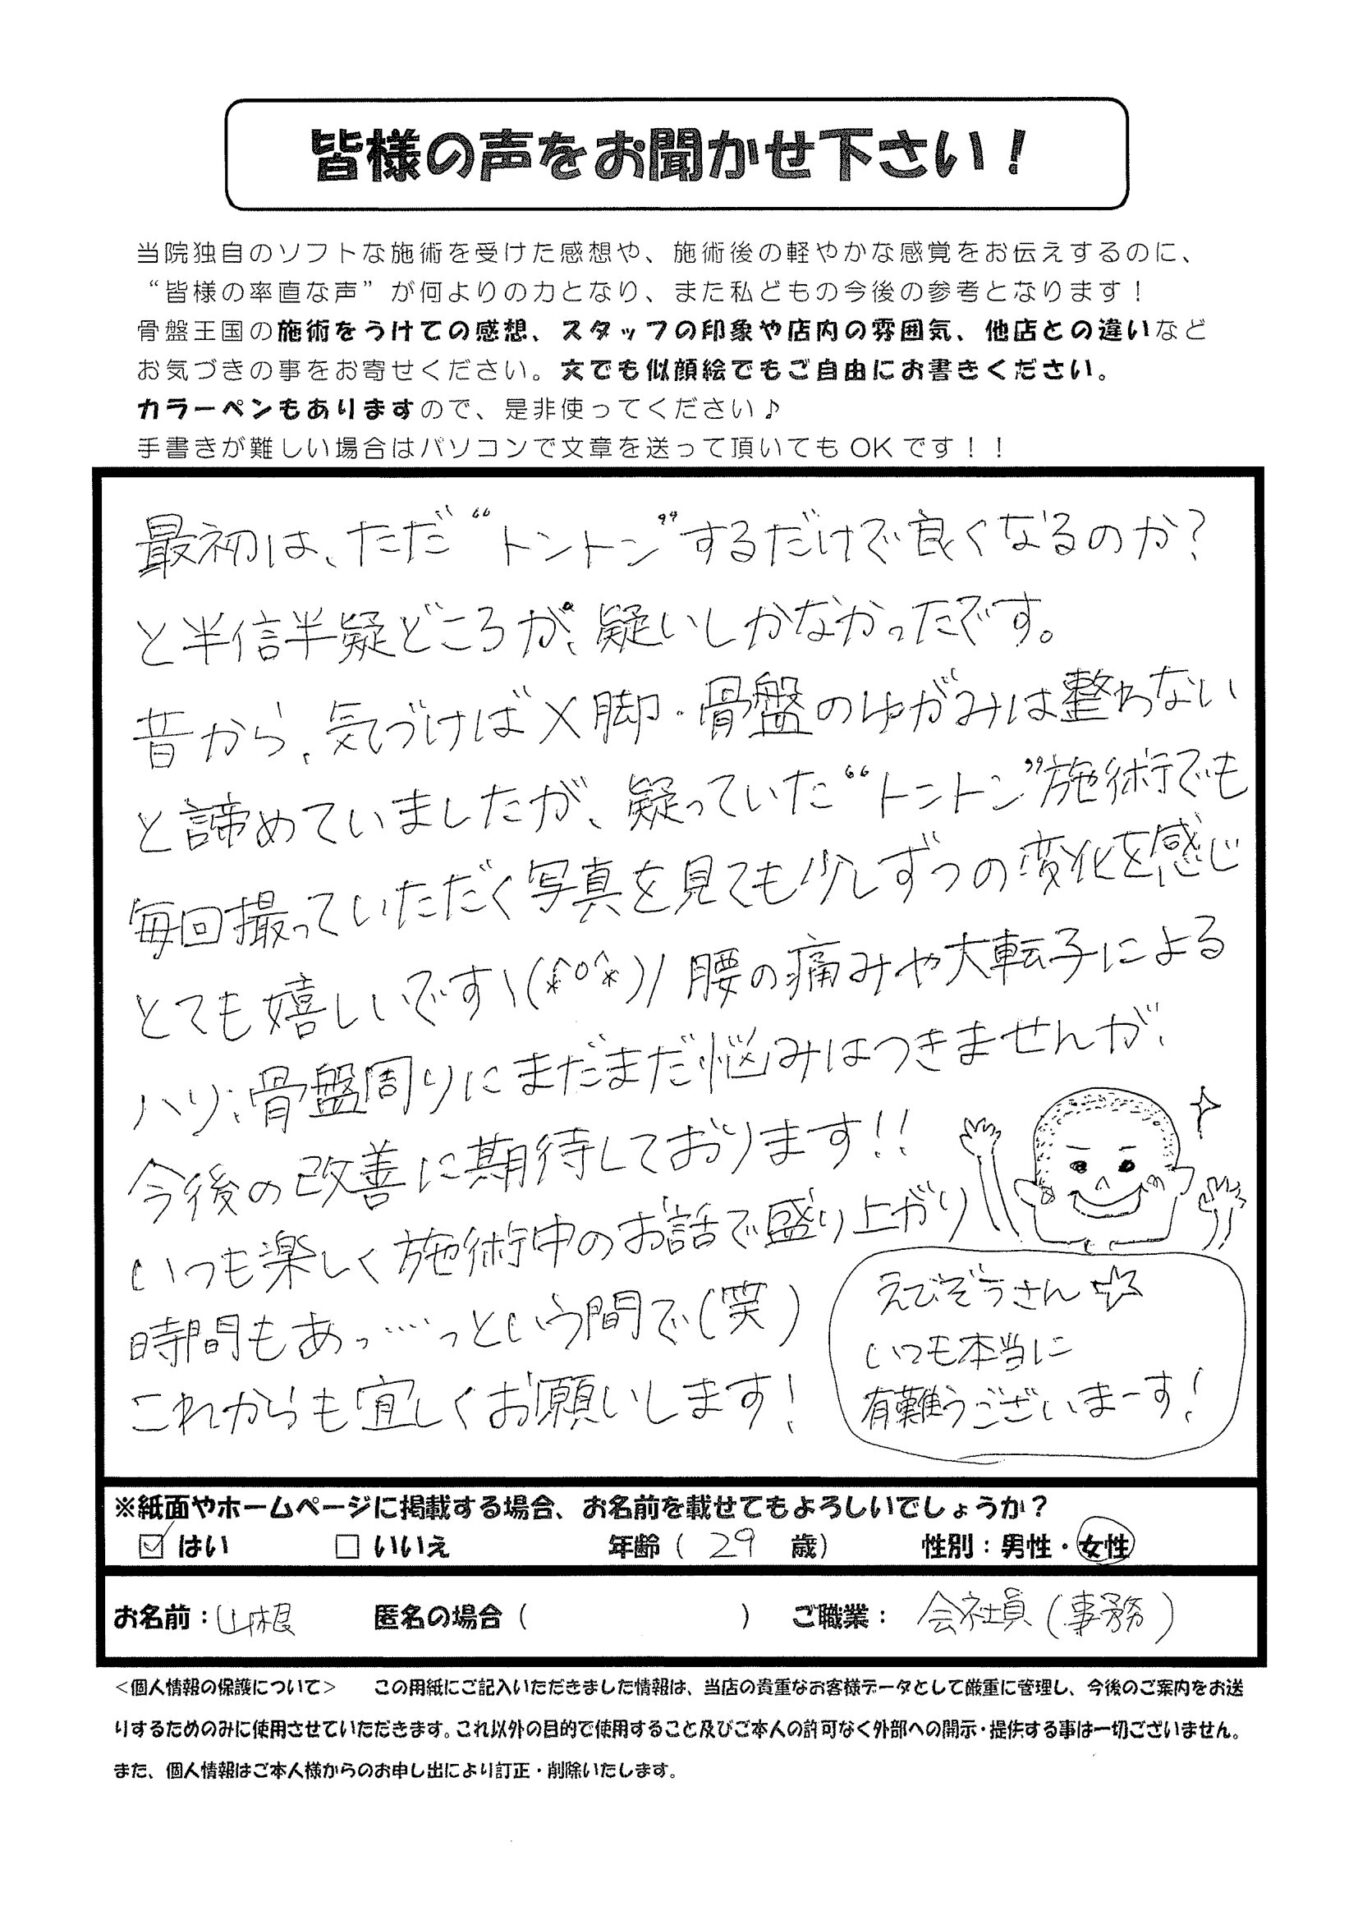 皆様の声をお聞かせ下さい！
当院独自のソフトな施術を受けた感想や、施術後の軽やかな感覚をお伝えするのに、
“皆様の率直な声”が何よりの力となり、また私どもの今後の参考となります！
骨盤王国の施術をうけての感想、スタッフの印象や店内の雰囲気、他店との違いなど
お気づきの事をお寄せください。文でも似顔絵でもご自由にお書きください。
カラーペンもありますので、是非使ってください♪
手書きが難しい場合はパソコンで文章を送って頂いてもOKです！！
最初は、ただ“トントン”するだけで良くなるのか？
と半信半疑どころが、疑いしかなかったです。
昔から、気づけばX脚・骨盤のゆがみは整わない
と諦めていましたが、疑っていた“トントン”施術でも
毎回撮っていただく写真を見ても少しずつの変化を感じ
とても嬉しいです\(*^o^*)/ 腰の痛みや大転子による
ハリ、骨盤周りにまだまだ悩みはつきませんが、
今後の改善に期待しております!!
いつも楽しく施術中のお話で盛り上がり
時間もあっ……っという間で(笑)
これからも宜しくお願いします！
えびぞうさん☆
いつも本当に
有難うございまーす！
※紙面やホームページに掲載する場合、お名前を載せてもよろしいでしょうか？
☑はい　□いいえ　年齢（ 29 歳）　性別：男性・女性
お名前：山根　匿名の場合（　　　）　ご職業：会社員(事務)
＜個人情報の保護について＞　この用紙にご記入いただきました情報は、当店の貴重なお客様データとして厳重に管理し、今後のご案内をお送
りするためのみに使用させていただきます。これ以外の目的で使用すること及びご本人の許可なく外部への開示・提供する事は一切ございません。
また、個人情報はご本人様からのお申し出により訂正・削除いたします。